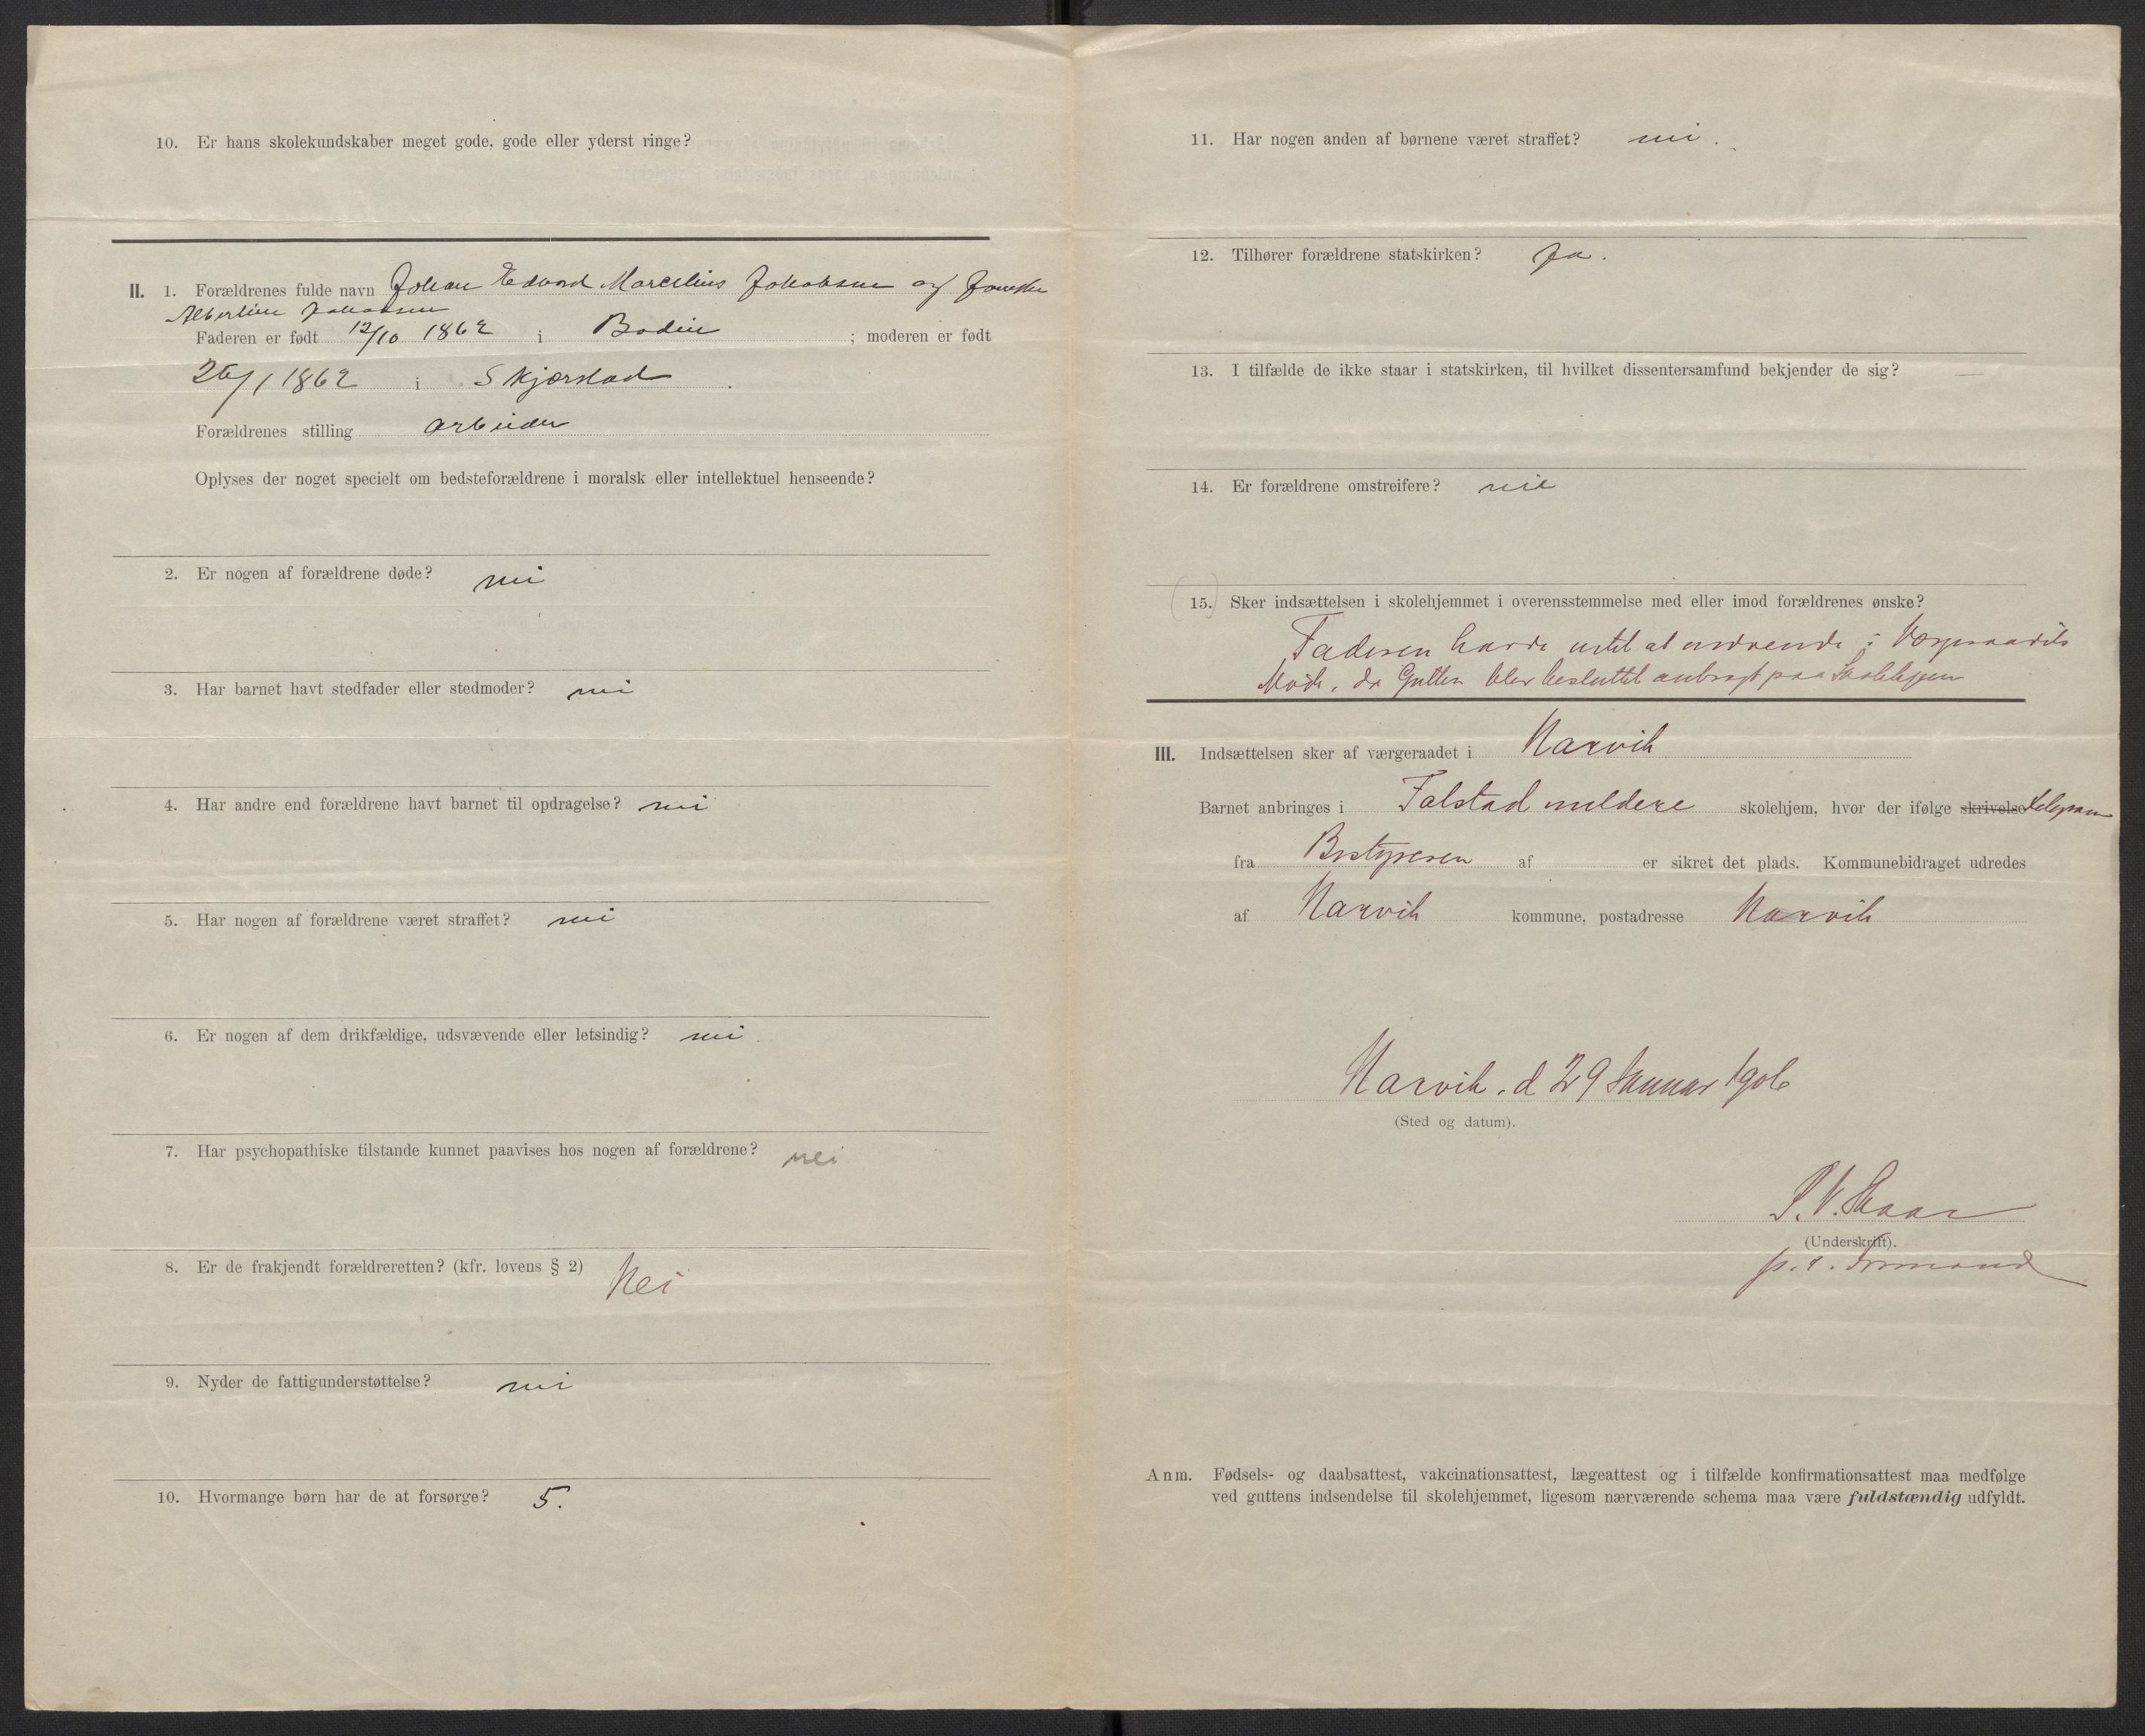 10. Er hans skolekundskaber meget gode, gode eller yderst ringe?
II. 1. Forældrenes fulde navn Johan Edvard Marcelius Jakobsen og
Albertine Jakobsen
Faderen er født 12/10 1862 i Bodin ; moderen er født
26/1 1862 i Skjerstad .
Forældrenes stilling arbeider
Oplyses der noget specielt om bedsteforældrene i moralsk eller intellektuel henseende?
2. Er nogen af forældrene døde? nei
3. Har barnet havt stedfader eller stedmoder? nei
4. Har andre end forældrene havt barnet til opdragelse? nei
5. Har nogen af forældrene været straffet? nei
6. Er nogen af dem drikfældige, udsvævende eller letsindig? nei.
7. Har psychopathiske tilstande kunnet paavises hos nogen af forældrene? nei
8. Er de frakjendt forældreretten? (kfr. lovens § 2) Nei
9. Nyder de fattigunderstøttelse? nei
10. Hvormange børn har de at forsørge? 5.
11. Har nogen anden af børnene været straffet? nei.
12. Tilhører forældrene statskirken? Ja.
13. I tilfælde de ikke staar i statskirken, til hvilket dissentersamfund bekjender de sig? —
14. Er forældrene omstreifere? nei
15. Sker indsættelsen i skolehjemmet i overensstemmelse med eller imod forældrenes ønske?
Faderen havde intet at indvende i Værgeraadets
Møde, da Gutten blev besluttet anbragt paa Skolehjem
III. Indsættelsen sker af værgeraadet i Narvik
Barnet anbringes i Falstad mildere skolehjem, hvor der ifølge skrivelse telegram
fra Bestyreren af er sikret det plads. Kommunebidraget udredes
af Narvik kommune, postadresse Narvik
Narvik. d 29 Januar 1906
(Sted og datum).
P. V. Skaar
(Underskrift).
p. t. Formand
Anm. Fødsels- og daabsattest, vakcinationsattest, lægeattest og i tilfælde konfirmationsattest maa medfølge
ved guttens indsendelse til skolehjemmet, ligesom nærværende schema maa være fuldstændig udfyldt.